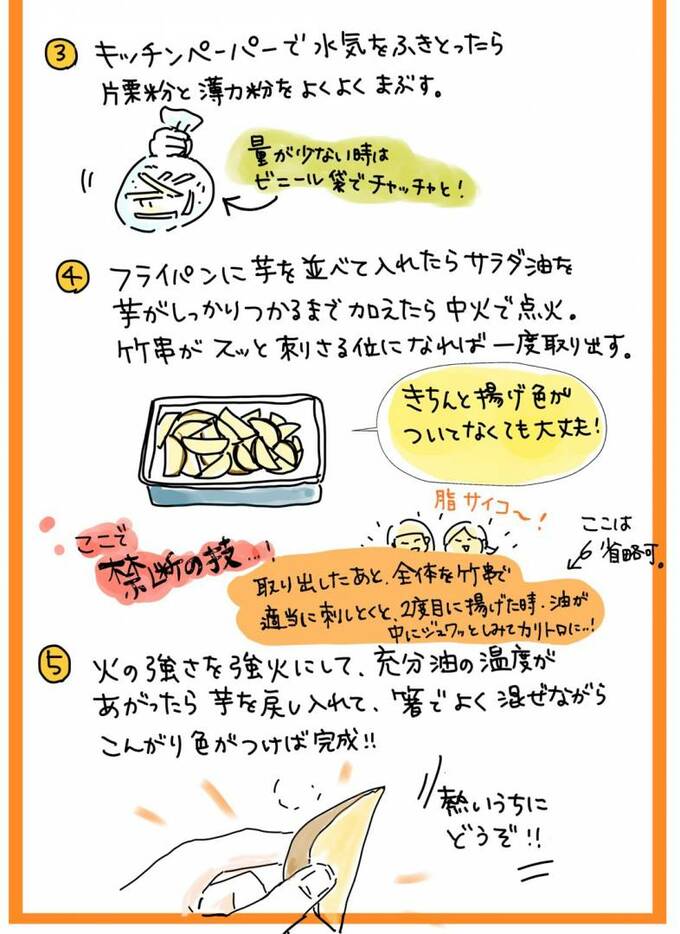 ③ キッチンペーパーで水気をふきとったら
片栗粉と薄力粉をよくよくまぶす。
量が少ない時は
ビニール袋でチャッチャと!
④ フライパンに芋を並べて入れたらサラダ油を
芋がしっかりつかるまで加えたら中火で点火。
竹串がスッと刺さる位になれば一度取り出す。
きちんと揚げ色が
ついてなくても大丈夫!
脂サイコ〜!
ここは
省略可。
ここで
禁断の技…!
取り出したあと、全体を竹串で
適当に刺しとくと、2度目に揚げた時、油が
中にジュワッとしみてカリトロに…!
⑤ 火の強さを強火にして、充分油の温度が
あがったら芋を戻し入れて、箸でよく混ぜながら
こんがり色がつけば完成!!
熱いうちに
どうぞ!!